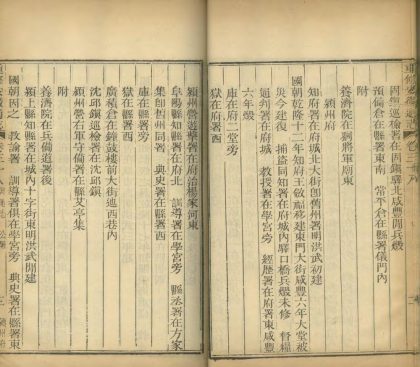 因鎮巡檢署在因鎮驛北咸豐間兵燬
預備倉在縣署東南　常平倉在縣署儀門內
附
養濟院在剿將軍廟東
潁州府
知府署在府城北大街即舊州署明洪武初建
國朝乾隆十二年知府王敛福移建東門大街咸豐六年大堂被
災今建復　捕盜同知署在府城內驛口橋兵燬未修　督糧
通判署在府城　教授署在學宮旁　經歷署在府署東咸豐
六年燬
庫在府二堂旁
獄在府署西
潁州營遊擊署在府治楊家河東
阜陽縣知縣署在府北　訓導署在學宮旁　縣丞署在方家
集即舊州同署　典史署在縣署西
庫在縣署旁
獄在縣署西
廣積倉在鐘鼓樓前大街迤西巷內
沈邱鎮巡檢署在沈邱鎮
潁州營右軍守備署在縣艾亭集
附
養濟院在兵備道署後
潁上縣知縣署在城內十字街東明洪武間建
國朝因之　教諭署　訓導署俱在學宮旁　典史署在縣署東